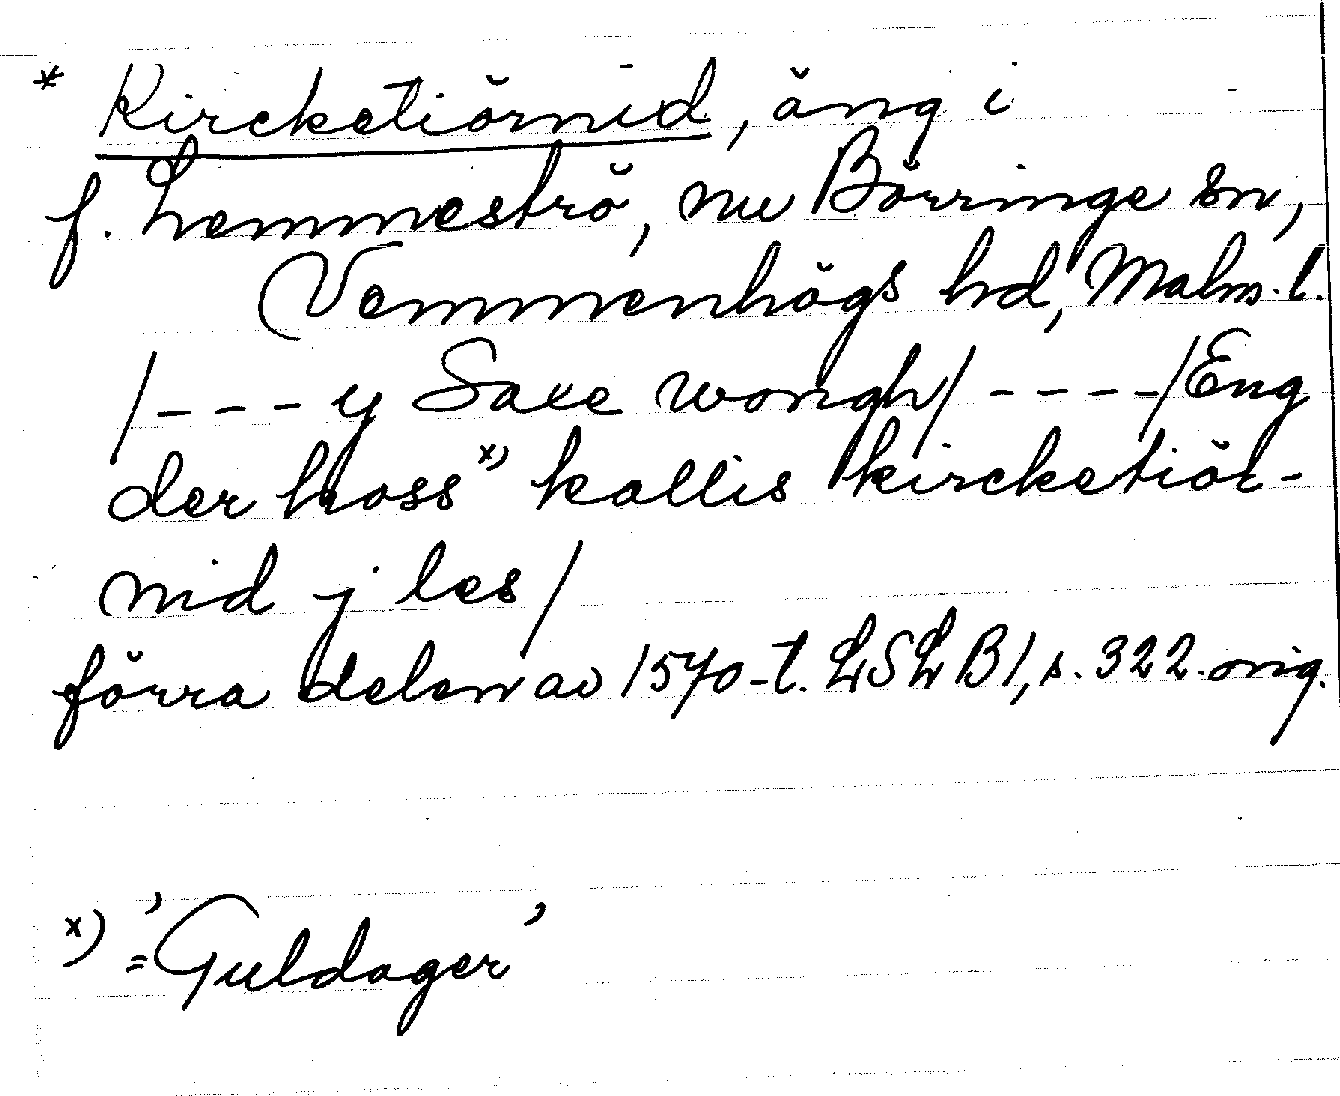 * Kircketiörnid, äng i
f. Lemmeströ, nu Börringe sn,
Vemmenhögs hd, Malm. l.
/---y Saxe wongh/----/Eng
der hoss x) kallis kircketiör-
nid j les/
förra delen av 1570-t. LSLB1, s. 322. orig.
x) = 'Guldager'